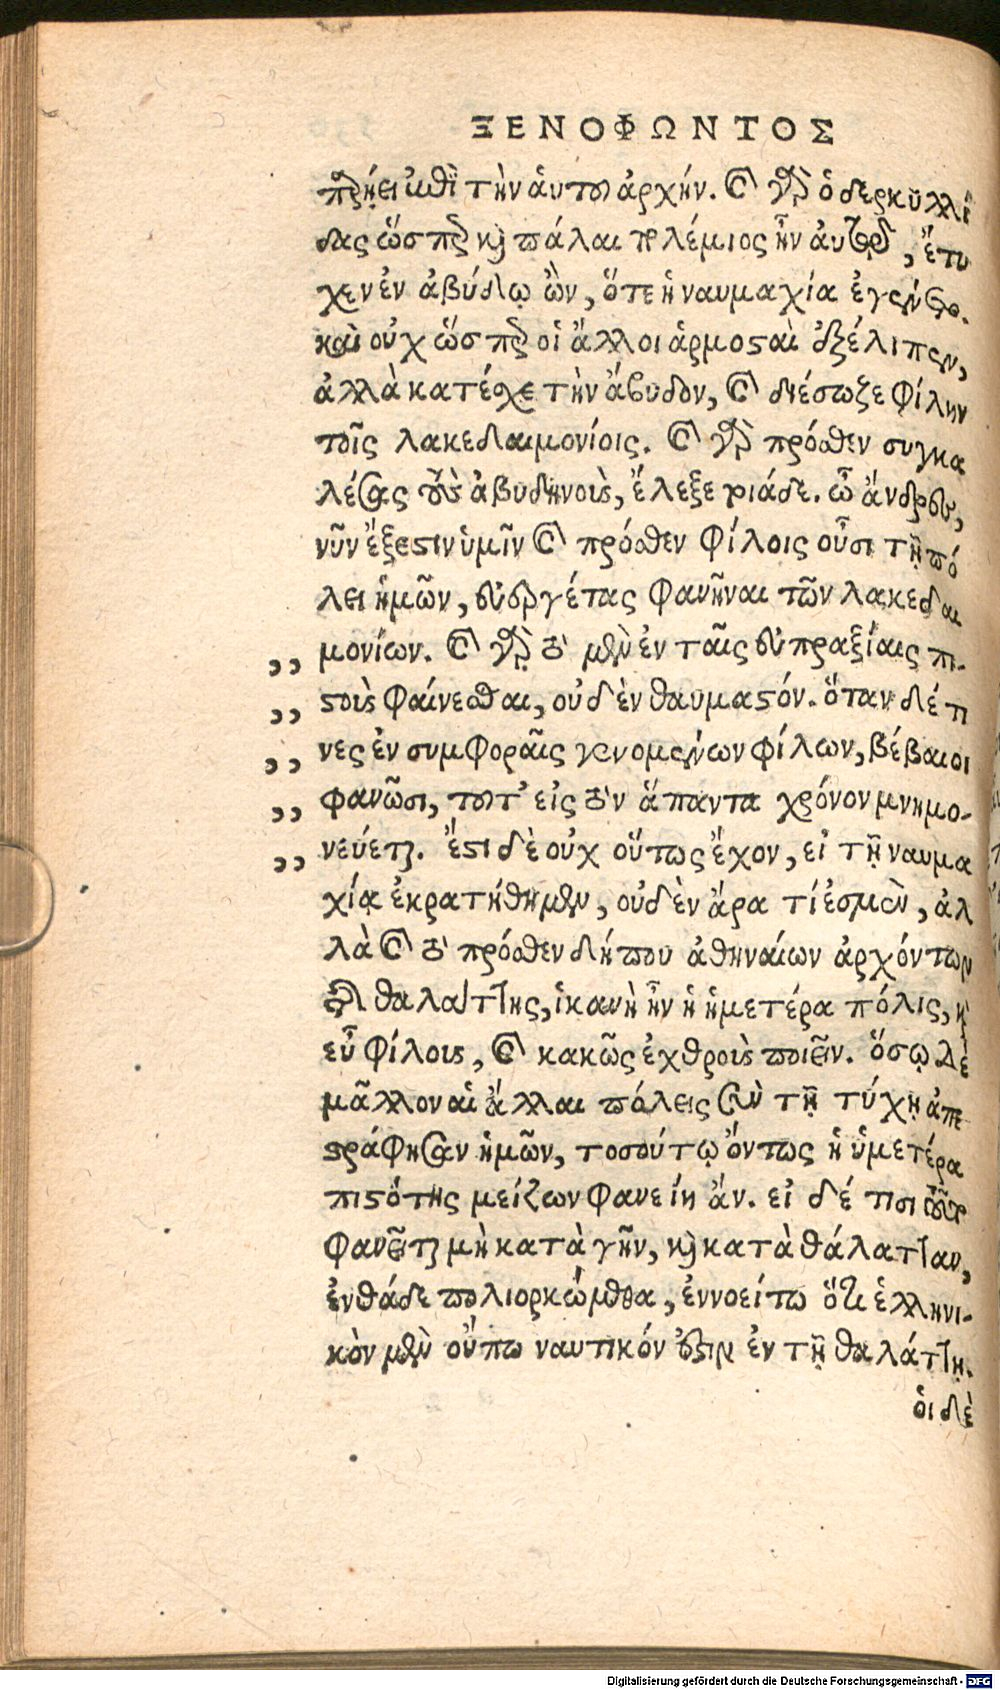 ΞΕΝΟΦΩΝΤΟΣ
παρῄει ἐπὶ τὴν ἁυτοῦ ἀρχήν. καὶ γὰρ ὁ δερκυλλί
δας ὥσπερ καὶ πάλαι πολέμιος ἦν ἀυτῷ, ἔτυ
χεν ἐν ἀβύδῳ ὢν, ὅτε ἡ ναυμαχία ἐγένετο.
καὶ οὐχ ὥσπερ οἱ ἄλλοι ἁρμοσταὶ ἐξέλιπεν,
ἀλλὰ κατέσχε τὴν ἄβυδον, καὶ διέσωζε φίλην
τοῖς λακεδαιμονίοις. καὶ γὰρ πρόσθεν συγκα
λέσας τοὺς ἀβυδηνοὺς, ἔλεξε τοιάδε. ὦ ἄνδρες,
νῦν ἔξεστιν ὑμῖν καὶ πρόσθεν φίλοις οὖσι τῇ πό
λει ἡμῶν, εὐεργέτας φανῆναι τῶν λακεδαι
,, μονίων. καὶ γὰρ τὸ μὲν ἐν ταῖς εὐπραξίαις πι-
,, στοὺς φαίνεσθαι, οὐδὲν θαυμαστόν. ὅταν δέ τι
,, νες ἐν συμφοραῖς γενομένων φίλων, βέβαιοι
,, φανῶσι, τοῦτ' εἰς τὸν ἅπαντα χρόνον μνημο-
,, νεύεται. ἔστι δὲ οὐχ οὕτως ἔχον, εἰ τῇ ναυμα
χίᾳ ἐκρατήθημεν, οὐδὲν ἄρα τί ἐσμὲν, ἀλ
λὰ καὶ τὸ πρόσθεν δήπου ἀθηναίων ἀρχόντων
τῆς θαλάττης, ἱκανὴ ἦν ἡ ἡμετέρα πόλις, καὶ
εὖ φίλους, καὶ κακῶς ἐχθροὺς ποιεῖν. ὅσῳ δὲ
μᾶλλον αἱ ἄλλαι πόλεις σὺν τῇ τύχῃ ἀπε
στράφησαν ἡμῶν, τοσούτῳ ὄντως ἡ ὑμετέρα
πιστότης μείζων φανείη ἄν. εἰ δέ τισι τοῦτο
φανεῖται μὴ κατὰ γῆν, καὶ κατὰ θάλατταν,
ἐνθάδε πολιορκώμεθα, ἐννοείτω ὅτι ἑλληνι-
κὸν μὲν οὔπω ναυτικόν ἐστιν ἐν τῇ θαλάττῃ.
ὁι δὲ
Digitalisierung gefördert durch die Deutsche Forschungsgemeinschaft - DFG